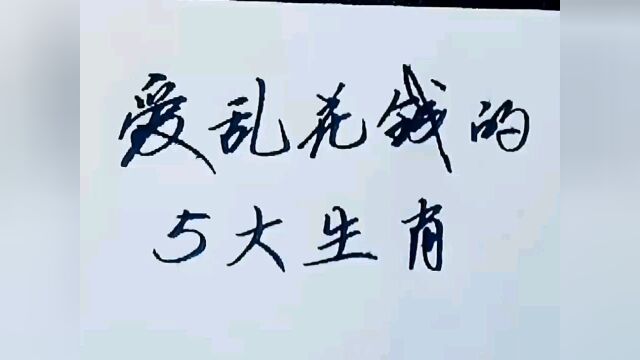 爱乱花钱的
5大生肖